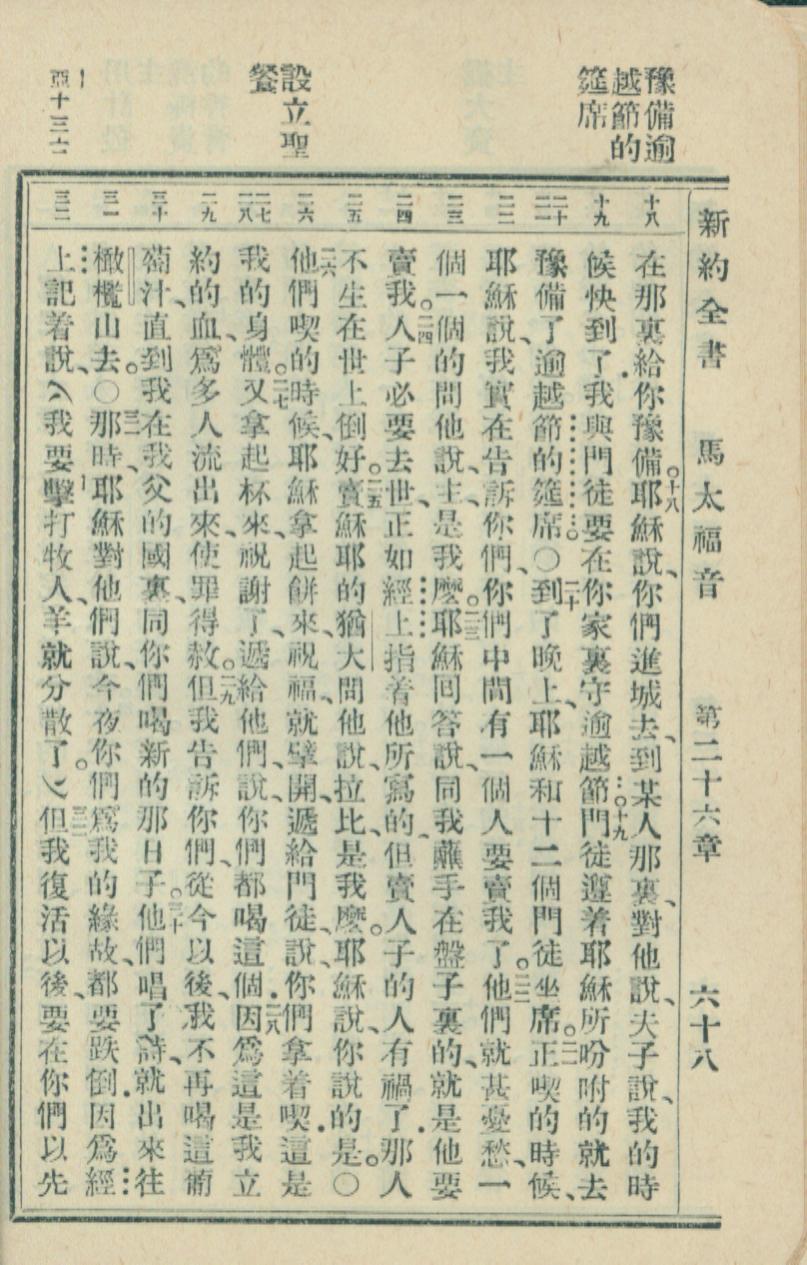 新約全書 馬太福音 第二十六章 六十八
豫備逾
越節的
筵席
設立聖
餐
亞十三 七
十八
十九
二十 二一
二二
二三
二四
二五
二六
二七 二八
二九
三十
三一
三二
在那裏給你豫備。十八耶穌說、你們進城去、到某人那裏、對他說、夫子說、我的時
候快到了我與門徒要在你家裏守逾越節。十九門徒遵着耶穌所吩咐的就去
豫備了逾越節的筵席。○二十到了晚上、耶穌和十二個門徒坐席。二一正喫的時候、
耶穌說、我實在告訴你們、你們中間有一個人要賣我了。二二他們就甚憂愁、一
個一個的問他說、主、是我麼。二三耶穌回答說、同我蘸手在盤子裏的、就是他要
賣我。二四人子必要去世、正如經上指着他所寫的、但賣人子的人有禍了、那人
不生在世上倒好。二五賣耶穌的猶大問他說、拉比、是我麼。耶穌說、你說的是。○
二六他們喫的時候、耶穌拿起餅來、祝福、就擘開、遞給門徒、說、你們拿着喫、這是
我的身體。二七又拿起杯來、祝謝了、遞給他們、說、你們都喝這個、二八因爲這是我立
約的血、爲多人流出來、使罪得赦。二九但我告訴你們、從今以後、我不再喝這葡
萄汁、直到我在我父的國裏、同你們喝新的那日子。三十他們唱了詩、就出來往
橄欖山去。○三一那時、耶穌對他們說、今夜你們爲我的緣故、都要跌倒、因爲經
上記着說、我要擊打牧人、羊就分散了。三二但我復活以後、要在你們以先